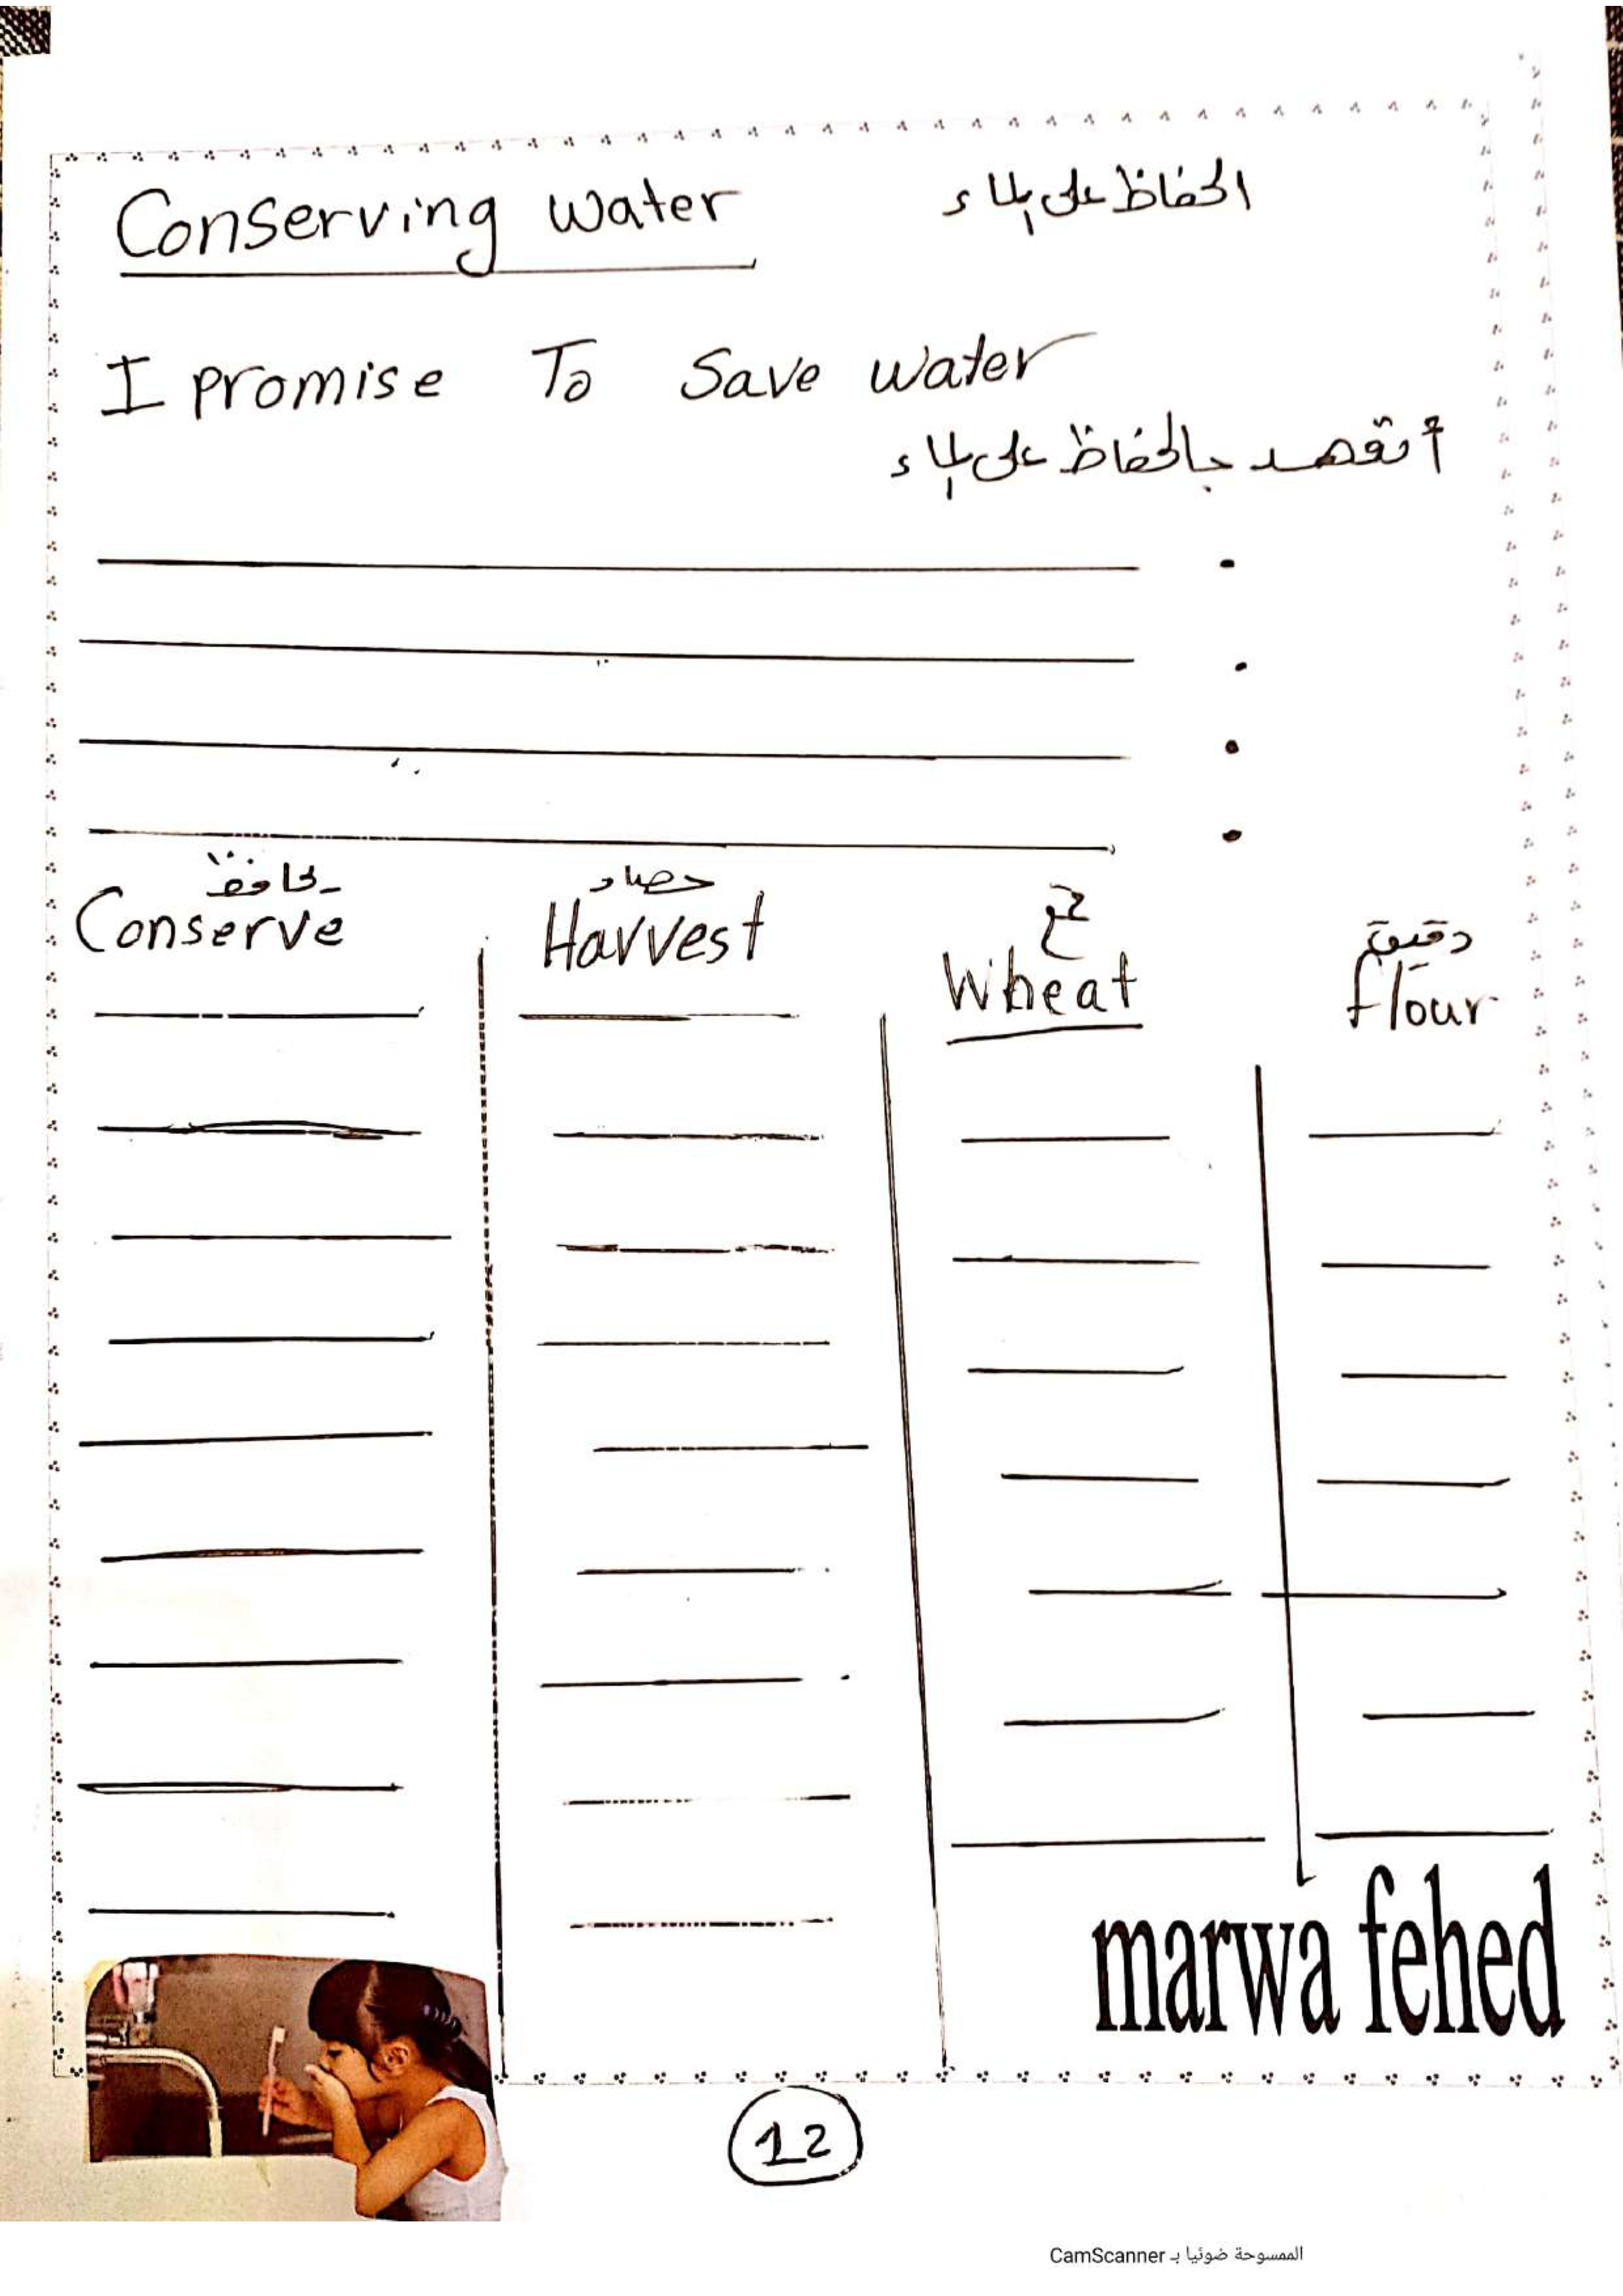 Conserving water
الحفاظ على الماء
I promise To Save water
أتعهد بالحفاظ على الماء
يحافظ
Conserve
حصاد
Harvest
قمح
Wheat
دقيق
flour
marwa fehed
12
الممسوحة ضوئيا بـ CamScanner